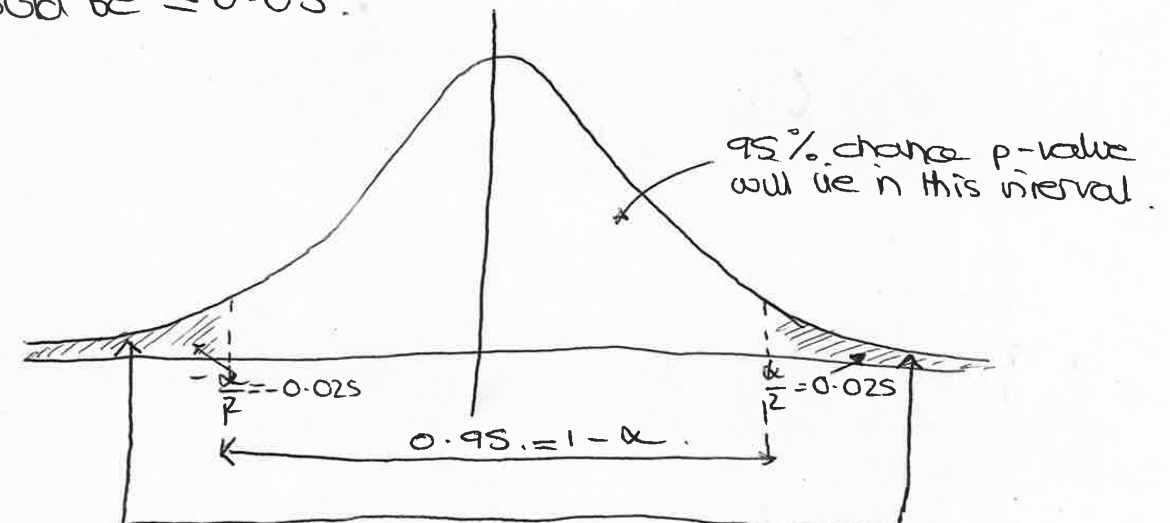 be ≤ 0.05.
95% chance p-value
will lie in this interval.
- α/2 = -0.025
α/2 = 0.025
0.95. = 1 - α.